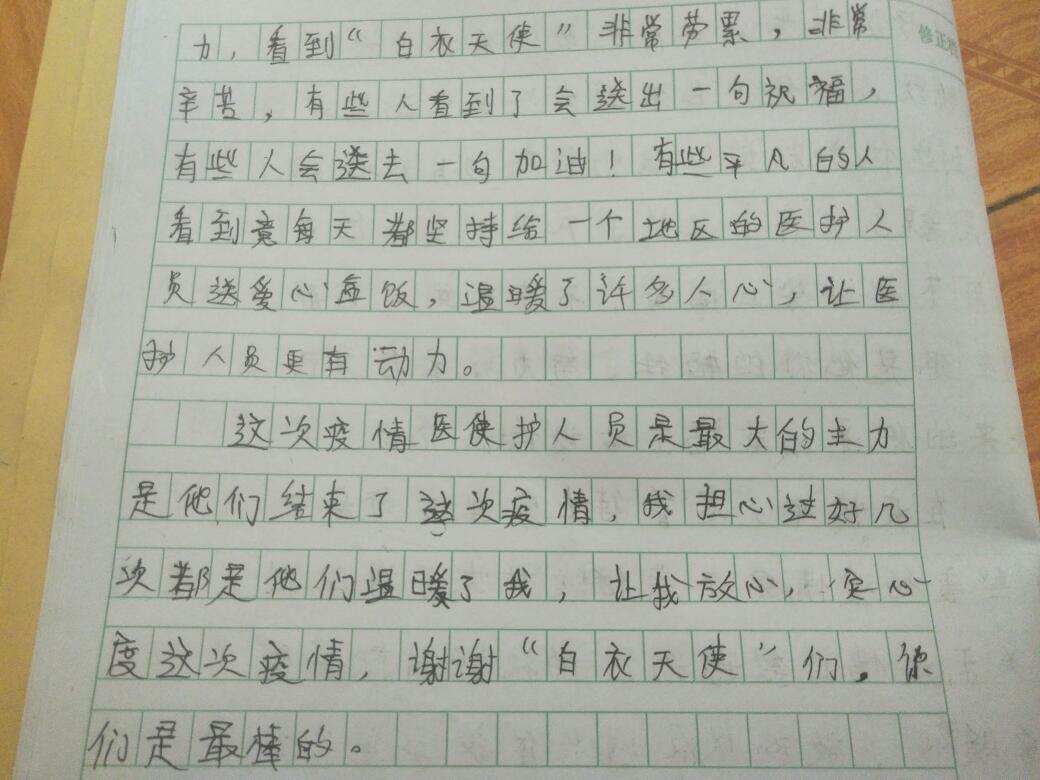 力，看到“白衣天使”非常劳累，非常
辛苦，有些人看到了会送出一句祝福，
有些人会送去一句加油！有些平凡的人
看到竟每天都坚持给一个地区的医护人
员送爱心盒饭，温暖了许多人心，让医
护人员更有动力。
这次疫情医使护人员是最大的主力
是他们结束了这次疫情，我担心过好几
次都是他们温暖了我，让我放心，安心
度这次疫情，谢谢“白衣天使”们。你
们是最棒的。
修正